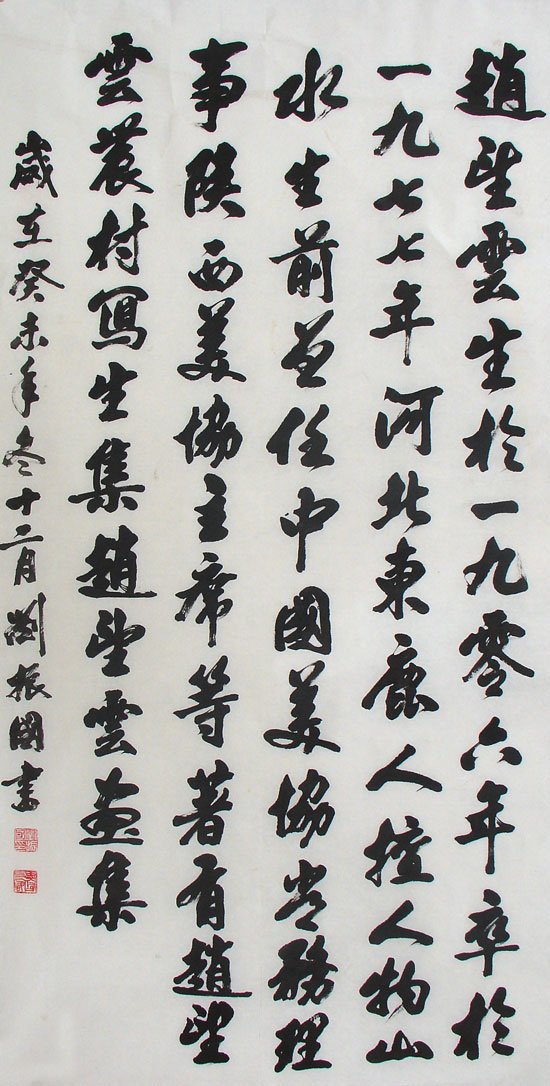 趙望雲生於一九零六年卒於
一九七七年河北東鹿人擅人物山
水生前曾任中國美協常務理
事陝西美協主席等著有趙望
雲農村寫生集趙望雲畫集
歲在癸未年冬十二月劉振國書